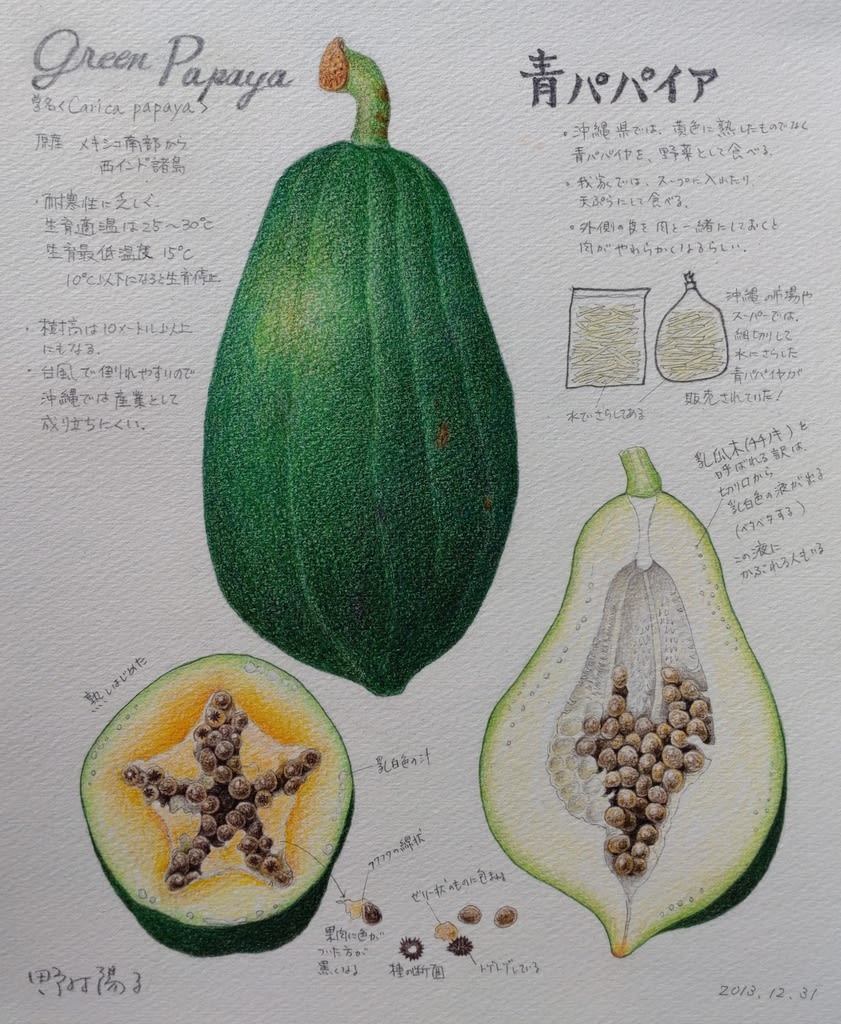 Green Papaya
学名<Carica papaya>
原産 メキシコ南部から
西インド諸島
・耐寒性に乏しく、
生育適温は25～30℃
生育最低温度 15℃
10℃以下になると生育停止
・樹高は10メートル以上
にもなる。
・台風で倒れやすいので
沖縄では産業として
成り立ちにくい。
青パパイア
・沖縄県では、黄色に熟したものでなく
青パパイヤを、野菜として食べる。
・我家では、スープに入れたり、
天ぷらにして食べる。
・外側の皮を肉と一緒にしておくと
肉がやわらかくなるらしい。
沖縄の市場や
スーパーでは、
細切りして
水にさらした
青パパイヤが
販売されていた!
水でさらしてある
乳瓜木(チチノキ)と
呼ばれる訳は、
切り口から
乳白色の液が出る
(ベタベタする)
この液に
かぶれる人もいる
熟しはじめた
乳白色の汁
フワフワの綿状
果肉に色が
ついた方が
黒くなる
ゼリー状のものに包まれる
種の断面
トゲトゲしている
野村陽子
2013.12.31